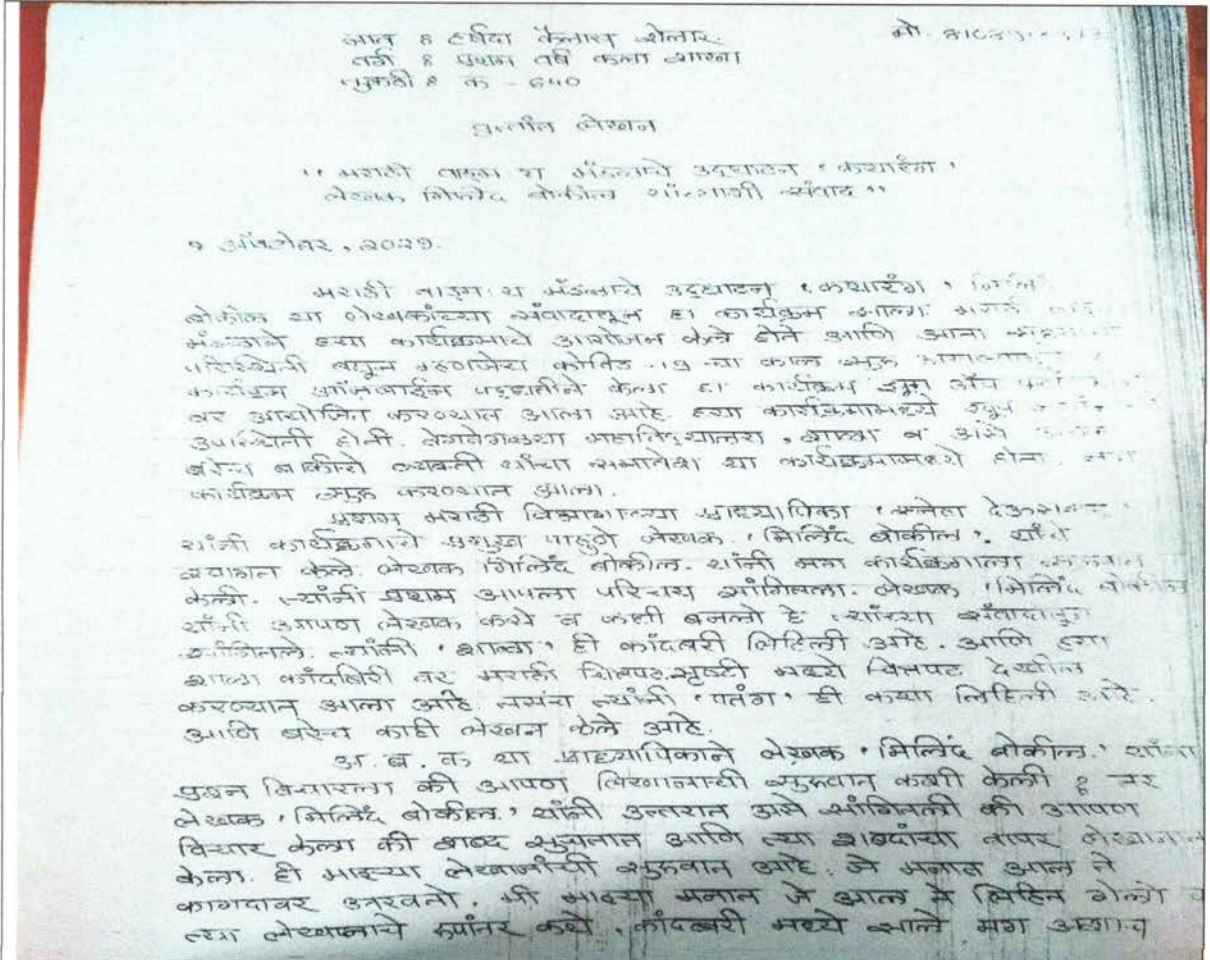 नाव : हर्षदा कैलास शेलार.
वर्ग : प्रथम वर्ष कला शाखा
तुकडी : क - 640
मो.
वृत्तांत लेखन
"मराठी वाङ्मय मंडळाचे उद्घाटन 'कथारंग'
लेखक मिलिंद बोकील यांच्याशी संवाद"
१ ऑक्टोबर, २०२१.
मराठी वाङ्मय मंडळाचे उद्घाटन 'कथारंग' मिलिंद
बोकील या लेखकांच्या संवादातून हा कार्यक्रम झाला. मराठी
मंडळाने ह्या कार्यक्रमाचे आयोजन केले होते आणि आता
परिस्थिती बघून म्हणजेच कोविड -19 चा काळ सुरू
कार्यक्रम ऑनलाईन पद्धतीने केला. हा कार्यक्रम झूम ॲप
वर आयोजित करण्यात आला आहे. ह्या कार्यक्रमामध्ये खूप
उपस्थिती होती. वेगवेगळ्या महाविद्यालय, शाळा व असे
बरेच बाकीचे व्यक्ती यांचा समावेश या कार्यक्रमामध्ये होता.
कार्यक्रम सुरू करण्यात आला.
प्रथम मराठी विभागाच्या प्राध्यापिका
यांनी कार्यक्रमाचे प्रमुख पाहुणे लेखक 'मिलिंद बोकील'. यांचे
स्वागत केले. लेखक मिलिंद बोकील. यांनी मग कार्यक्रमाला सुरुवात
केली. त्यांनी प्रथम आपला परिचय सांगितला. लेखक 'मिलिंद बोकील
यांनी आपण लेखक कसे व कशी बनलो हे त्यांच्या संवादातून
सांगितले. त्यांनी 'शाळा' ही कादंबरी लिहिली आहे. आणि ह्या
शाळा कादंबिरी वर मराठी चित्रपटसृष्टी मध्ये चित्रपट देखील
करण्यात आला आहे. तसंच त्यांनी 'पतंग' ही कथा लिहिली आहे.
आणि बरेच काही लेखन केले आहे.
अ. ब. क या प्राध्यापिकाने लेखक 'मिलिंद बोकील.' यांना
प्रश्न विचारला की आपण लिखाणाची सुरुवात कशी केली ? तर
लेखक 'मिलिंद बोकील.' यांनी उत्तरात असे सांगितली की आपण
विचार केला की शब्द सुचतात आणि त्या शब्दांचा वापर लेखनात
केला. ही माझ्या लेखनाची सुरुवात आहे. जे मनात आल ते
कागदावर उतरवतो. मी माझ्या मनात जे आल ते लिहित गेलो व
त्या लेखनाचे रूपांतर कथे, कादंबरी मध्ये झाले मग अशाच